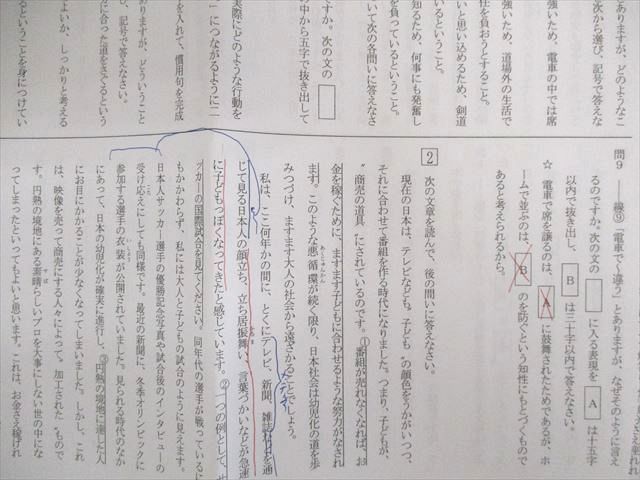 ありますが、どのようなこ
次から選び、記号で答えな
強いため、電車の中では席
強いため、道場外の生活で
任を負おうとすること。
いと思い込めるため、剣道
ているということ。
知るため、何事にも発奮し
を負っているということ。
いて次の各問いに答えなさ
か。次の文の
中から五字で抜き出して
実際にどのような行動を
」につながるように二
を入れて、慣用句を完成
ありますが、どういうこと
び、記号で答えなさい。
に合った道をさぐるという
よいか、しっかりと考える
るということを身につけてい
問9 ――線⑨「電車で〜違う」とありますが、なぜそのように言え
るのですか。次の文の に入る表現を A は十五字
以内で抜き出し、 B は三十字以内で答えなさい。
☆ 電車で席を譲るのは、 A に鼓舞されたためであるが、ホ
ームで並ぶのは、 B のを防ぐという知性にもとづくもので
あると考えられるから。
2 次の文章を読んで、後の問いに答えなさい。
現在の日本は、テレビなども〝子ども〟の顔色をうかがいつつ、
それに合わせて番組を作る時代になりました。つまり、子どもが、
〝商売の道具〟にされているのです。①番組が売れなくなれば、お
金を稼ぐために、ますます子どもに合わせるような努力がなされ
ます。このような悪循環が続く限り、日本社会は幼児化の道を歩
みつづけ、ますます大人の社会から遠ざかることでしょう。
私は、ここ何年かの間に、とくにテレビ、新聞、雑誌などを通
じて見る日本人の顔立ち、立ち居振舞い、言葉づかいなどが急速
に子どもっぽくなってきたと感じています。②一つの例として、サ
ッカーの国際試合を見てください。同年代の選手が戦っているに
もかかわらず、私には大人と子どもの試合のように見えます。
日本人サッカー選手の優勝記念写真や試合後のインタビューの
受け応えにしても同様です。最近の新聞に、冬季オリンピックに
参加する選手の衣装が公開されていました。見られる時代のなか
にあって、日本の幼児化が確実に進行し、③円熟の境地に達した人
にお目にかかることが少なくなってしまいました。しかし、これ
は、映像を売って商売にする人々によって〝加工された〟もので
す。円熟の境地にある素晴らしいプロを大事にしない世の中にな
ってしまったといってもよいと思います。これは、お金さえ稼げれ